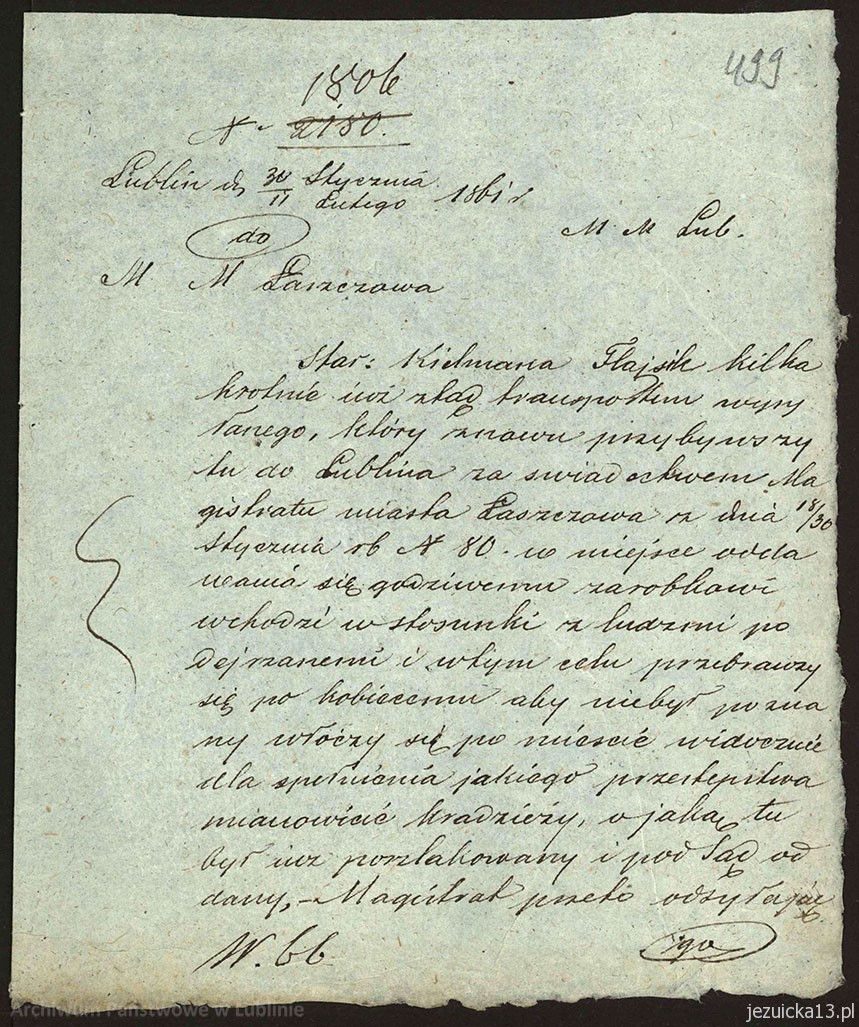 499
1806
N. 2180.
Lublin d. 30/11 Stycznia/Lutego 1861 r
M M Lub.
do
M M Łaszczowa
Star: Kielmana Flajsik kilka
krotnie iuż ztąd transportem wysy
łanego, który znowu przybywszy
tu do Lublina za swiadectwem Ma
gistratu miasta Łaszczowa z dnia 18/30
Stycznia rb N 80. w miejsce odda
wania się godziwemu zarobkowi
wchodzi w stosunki z ludzmi po
dejrzanemi i wtym celu przebrawzy
się po kobiecemu aby niebył pozna
ny włóczy się po miescie widocznie
dla spełnienia jakiego przestepstwa
mianowicie kradzieży, o jaką tu
był iuz poszlakowany i pod Sąd od
dany, – Magistrat przeto odsyłając
go
W. 66
Archiwum Państwowe w Lublinie
jezuicka13.pl